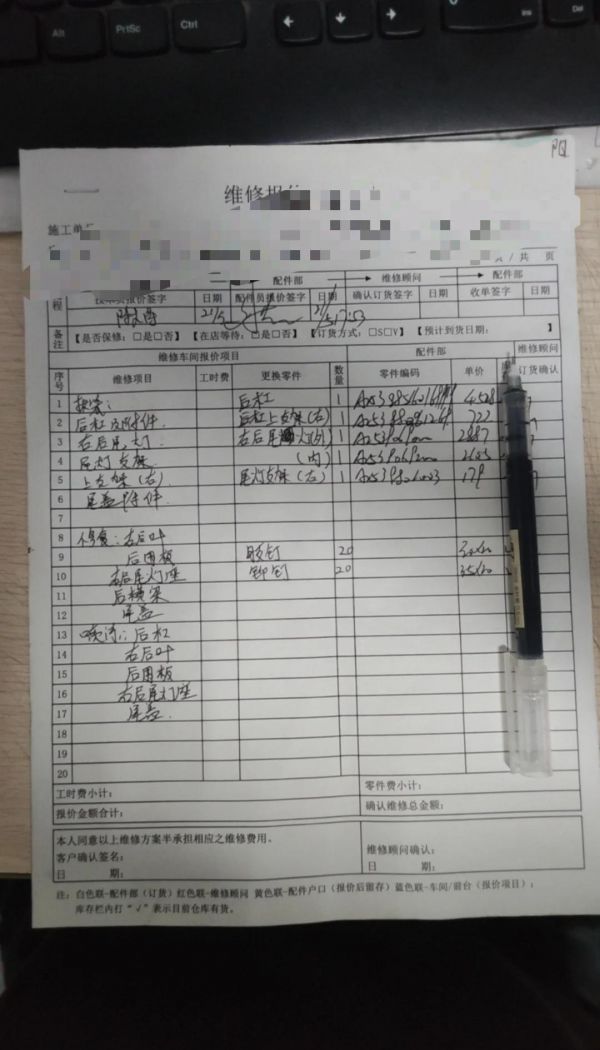 Alt PrtSc Ctrl Ins Del
阳
维修报价
施工单
共 / 共 页
配件部 维修顾问 配件部
程 接单员报价签字 日期 配件员报价签字 日期 确认订货签字 日期 收单签字 日期
备注 【是否保修：□是□否】 【在店等待：□是□否】 【订货方式：□S□V】 【预计到货日期： 】
维修车间报价项目 配件部 维修顾问
序号 维修项目 工时费 更换零件 数量 零件编码 单价 订货确认
1 拆装： 后杠 1 4528
2 后杠及附件 后杠上支架(右) 1 722
3 右后尾灯 右后尾灯(外) 1 2887
4 尾灯支架 (内) 1
5 上支架(右) 尾灯支架(右) 1 179
6 尾盖附件
7
8 修复：右后叶
9 后围板 胶钉 20
10 右后尾灯座 铆钉 20
11 后横梁
12 尾盖
13 喷漆：后杠
14 右后叶
15 后围板
16 右后尾灯座
17 尾盖
18
19
20
工时费小计： 零件费小计：
报价金额合计： 确认维修总金额：
本人同意以上维修方案半承担相应之维修费用。
客户确认签名： 维修顾问确认：
日 期： 日 期：
注：白色联-配件部（订货）红色联-维修顾问 黄色联-配件户口（报价后留存）蓝色联-车间/前台（报价项目）；
库存栏内打“√”表示目前仓库有货。